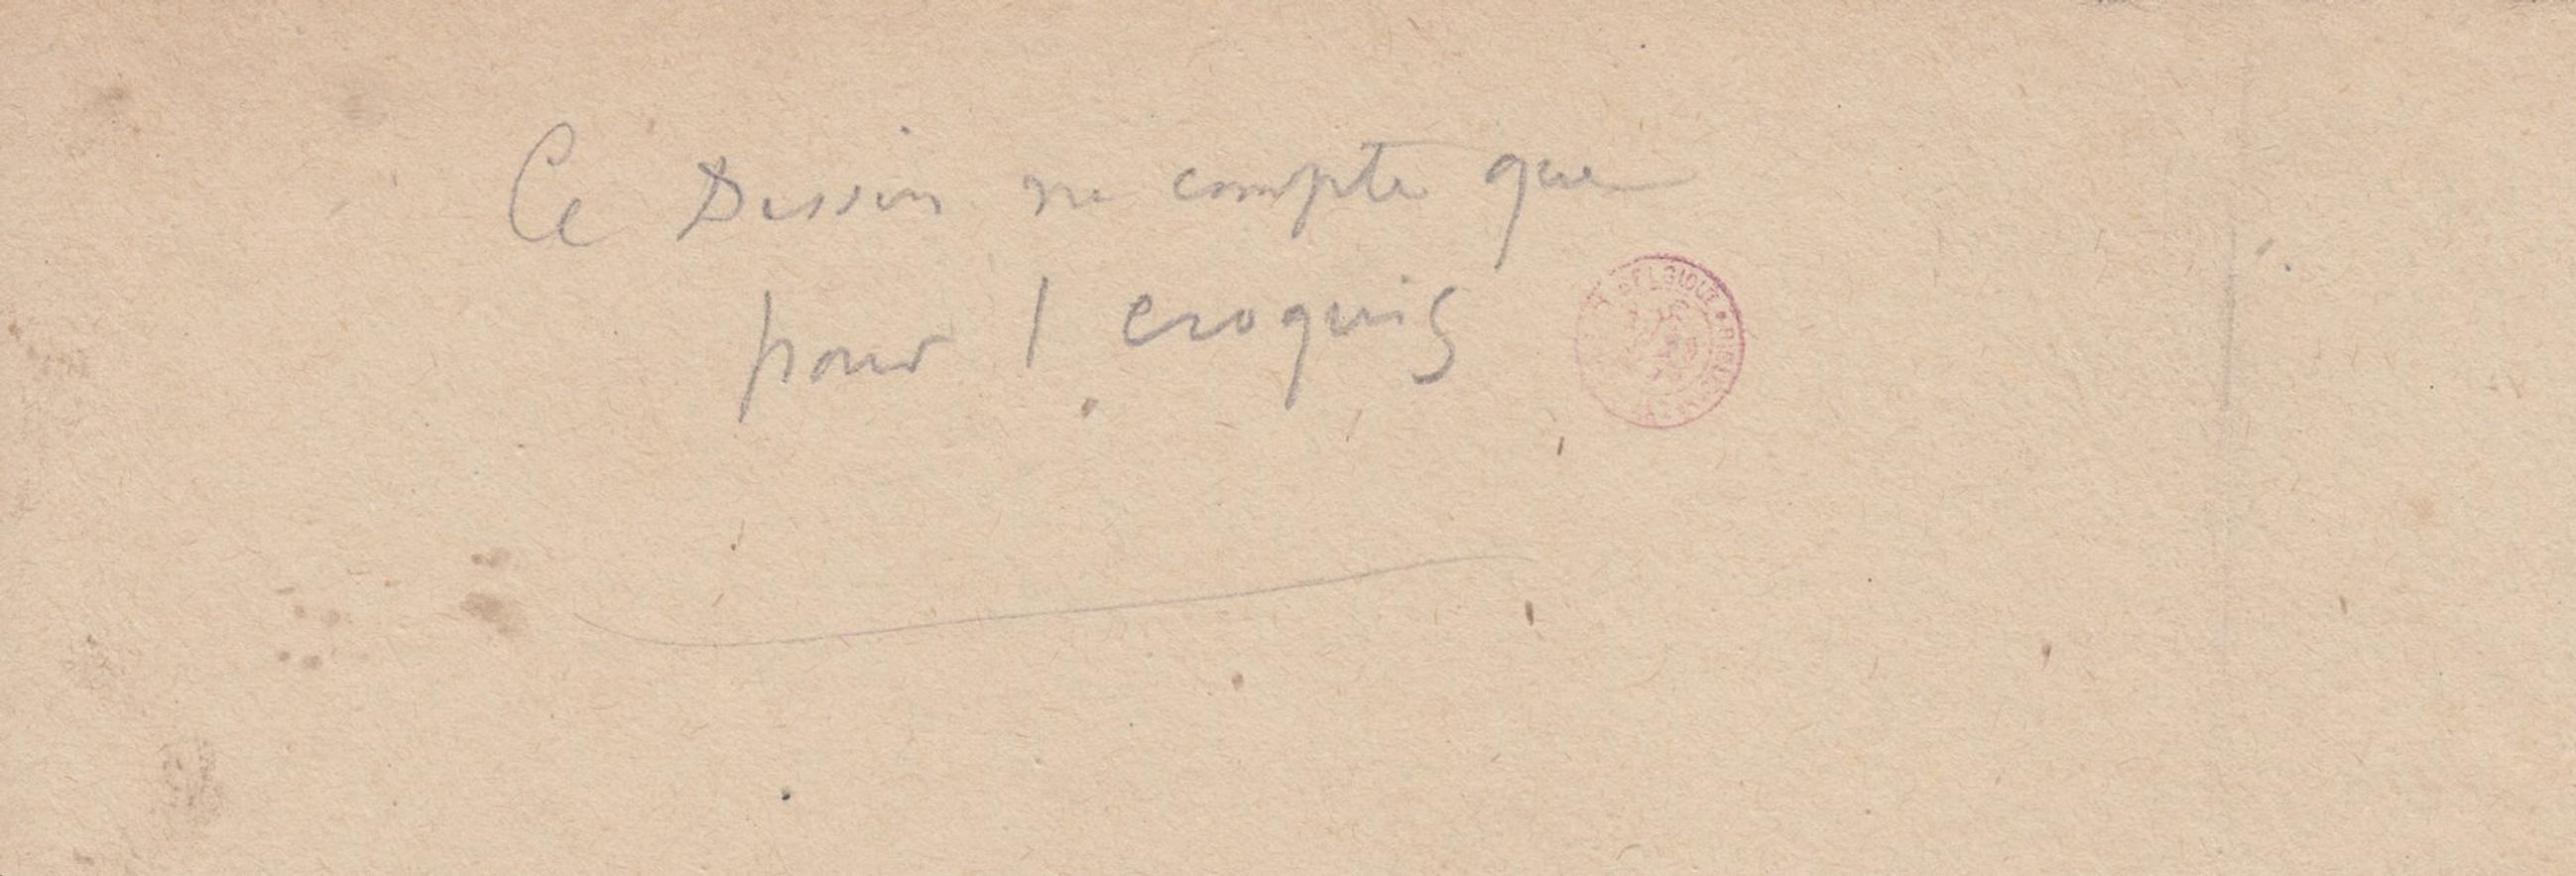 Ce Dessin ne compte que
pour 1 croquis
BELGIQUE